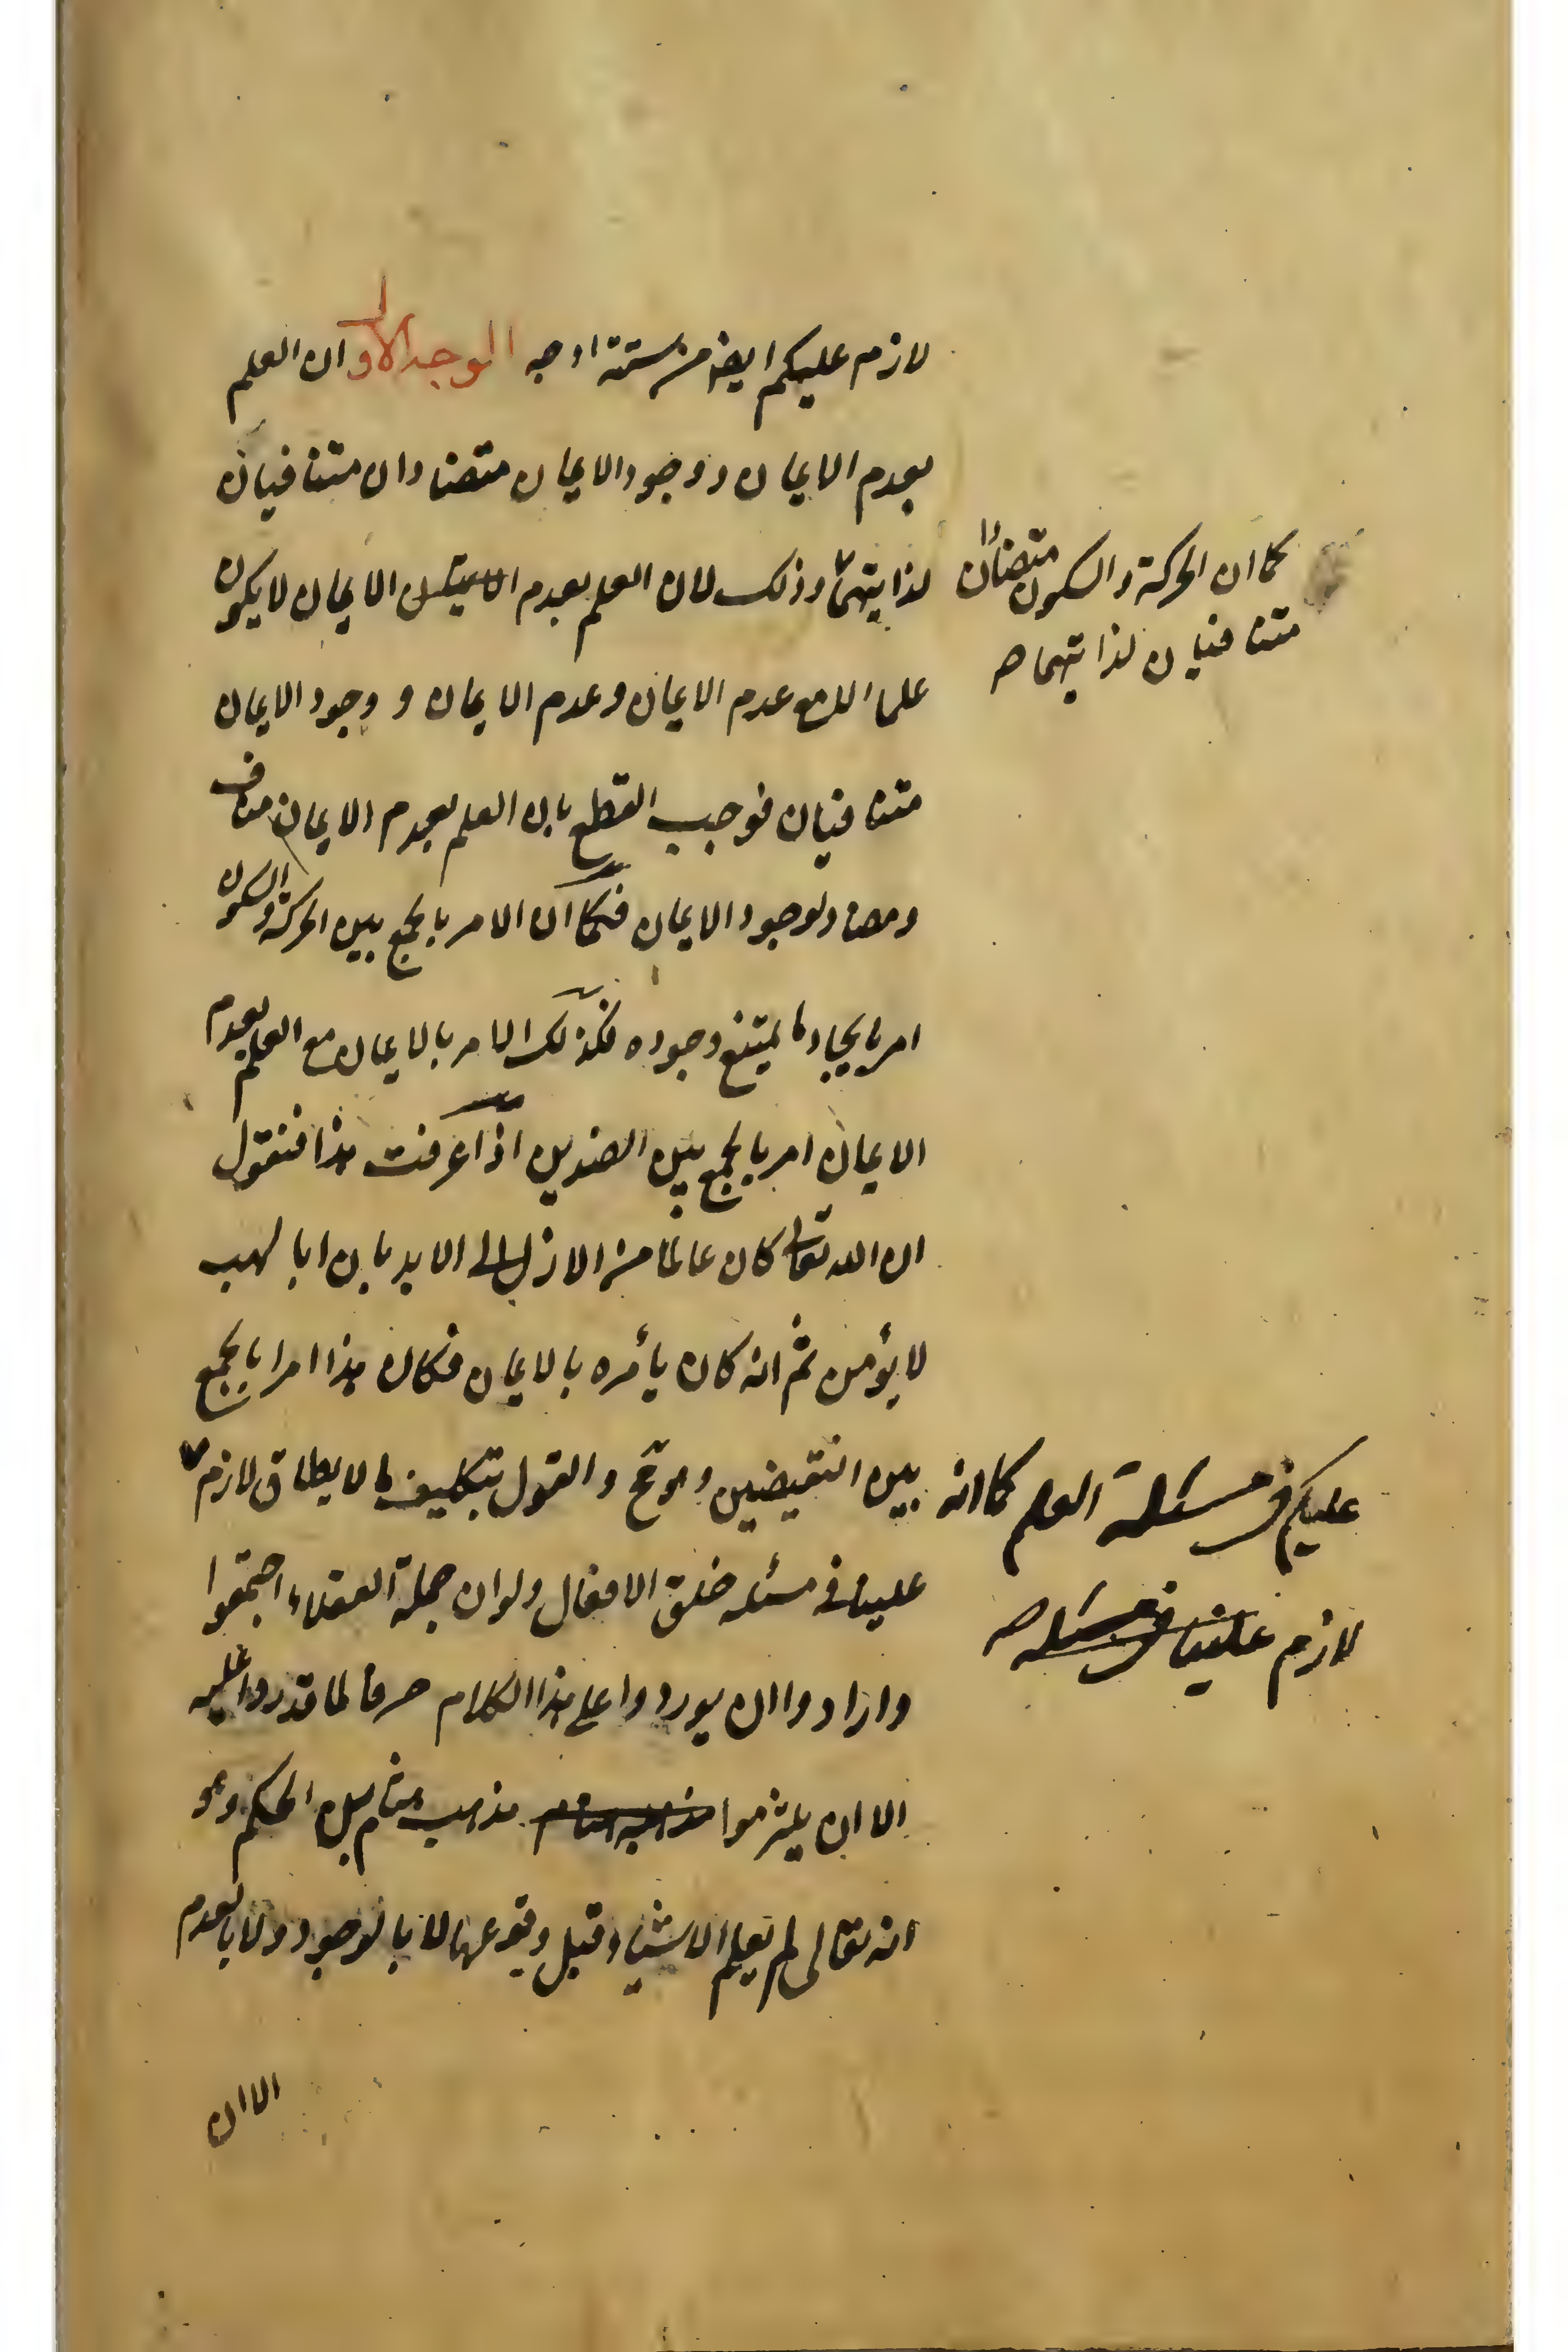 لازم عليكم ايضا من ستة اوجه الوجه الاول ان العلم
بعدم الايمان ووجود الايمان متضادان متنافيان
لذاتيهما وذلك لان العلم بعدم الايمان لا يكون
علما الا مع عدم الايمان وعدم الايمان و وجود الايمان
متنافيان فوجب القطع بان العلم بعدم الايمان مناف
ومضاد لوجود الايمان فكما ان الامر بالجمع بين الحركة والسكون
امر بايجاد ما يمتنع وجوده فكذلك الامر بالايمان مع العلم بعدم
الايمان امر بالجمع بين الضدين اذا عرفت هذا فنقول
ان الله تعالى كان عالما من الازل الى الابد بان ابا لهب
لا يؤمن ثم انه كان يأمره بالايمان فكان هذا امرا بالجمع
بين النقيضين وهو مح والقول بتكليف ما لا يطاق لازم
علينا فى مسئله خلق الافعال ولو ان جملة العقلاء اجتمعوا
وارادوا ان يوردوا على هذا الكلام حرفا لما قدروا عليه
الا ان يلتزموا مذهب هشام مذهب هشام بن الحكم وهو
انه تعالى لم يعلم الاشياء قبل وقوعها لا بالوجود ولا بالعدم
الا ان
كما ان الحركة والسكون متضادان
متنافيان لذاتيهما صح
عليكم فى مسئلة العلم كما انه
لازم علينا فى مسئله صح